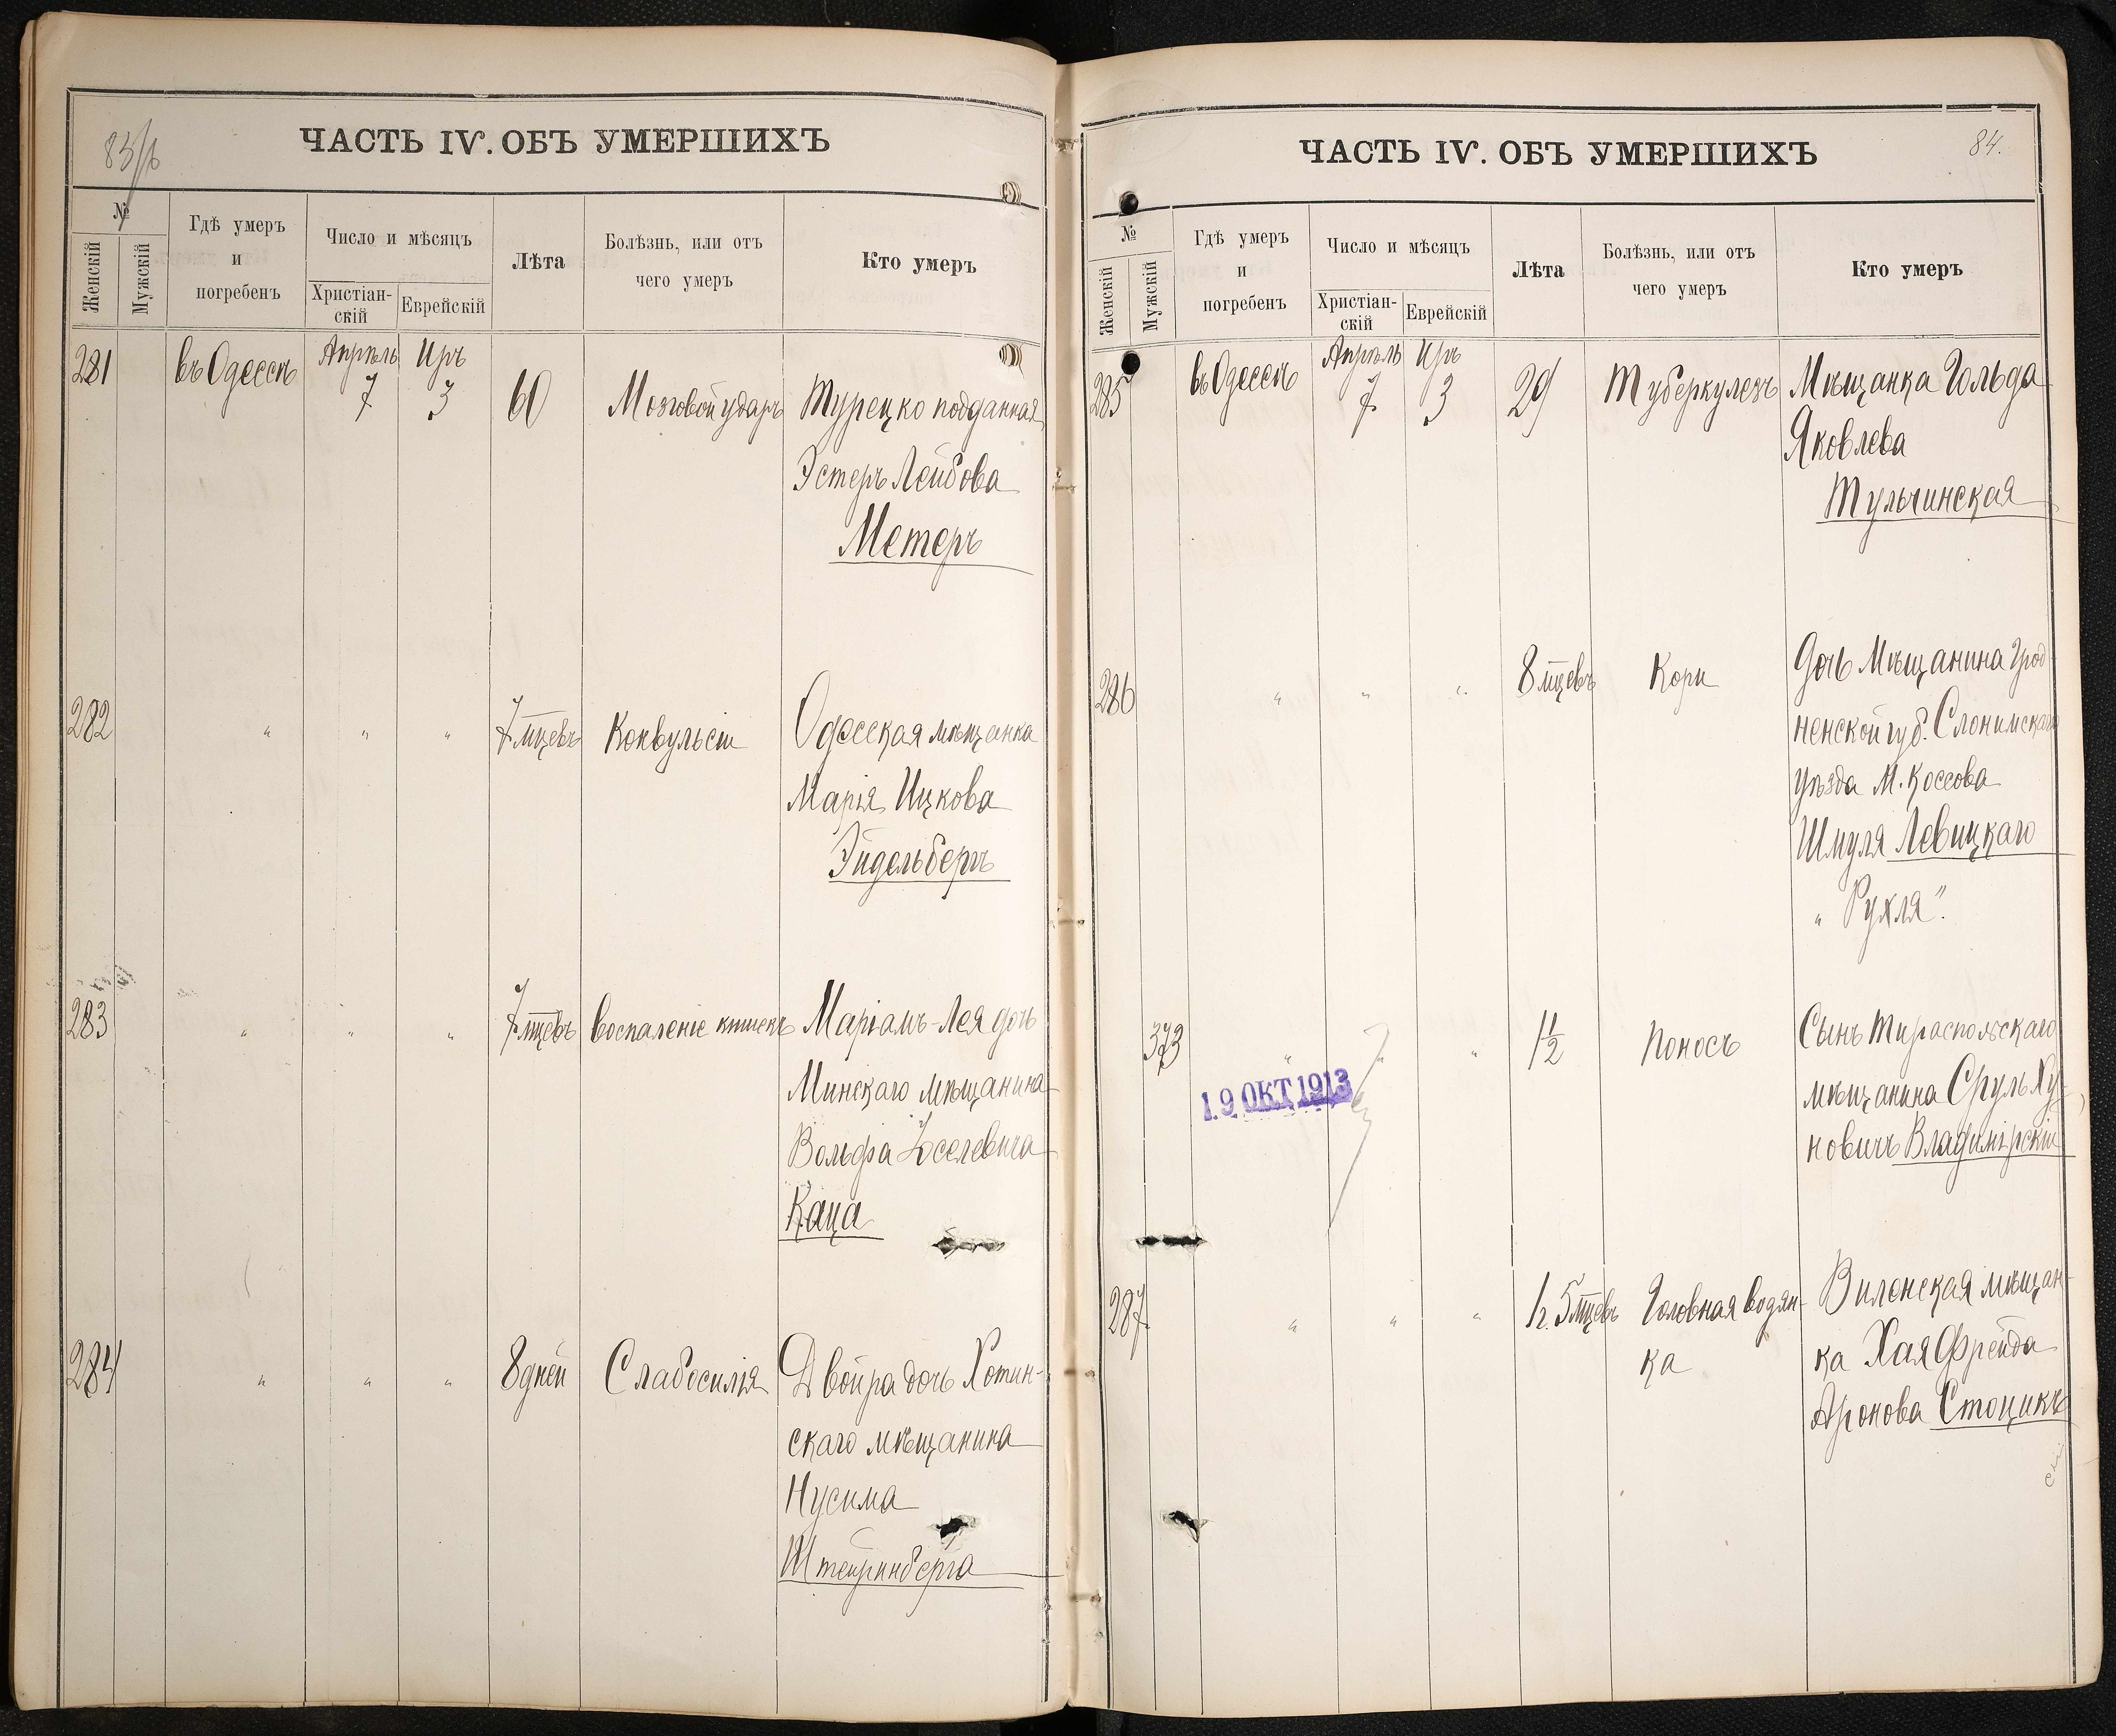 83/б
ЧАСТЬ IV. ОБЪ УМЕРШИХЪ
№
Женскій
Мужскій
Гдѣ умеръ
и
погребенъ
Число и мѣсяцъ
Христіан-
скій
Еврейскій
Лѣта
Болѣзнь, или отъ
чего умеръ
Кто умеръ
281 въ Одессѣ Апрѣль 7 Иръ 3 60 Мозговой ударъ Турецко подданная
Эстеръ Лейбова
Метеръ
282 " " " 7 мцевъ Конвульсіи Одесская мѣщанка
Марія Ицкова
Эйдельбергъ
283 " " " 7 мцевъ Воспаленіе кишекъ Маріамъ-Лея дочь
Минскаго мѣщанина
Вольфа Іоселевича
Каца
284 " " " 8 дней Слабосилія Двойра дочь Хотин-
скаго мѣщанина
Нусима
Штейринберга
84.
ЧАСТЬ IV. ОБЪ УМЕРШИХЪ
№
Женскій
Мужскій
Гдѣ умеръ
и
погребенъ
Число и мѣсяцъ
Христіан-
скій
Еврейскій
Лѣта
Болѣзнь, или отъ
чего умеръ
Кто умеръ
285 въ Одессѣ Апрѣль 7 Иръ 3 29 Туберкулезъ Мѣщанка Гольда
Яковлева
Тульчинская
286 " " " 8 мцевъ Кори Дочь Мѣщанина Грод-
ненской губ. Слонимскаго
уѣзда М. Коссова
Шмуля Левицкаго
"Рухля".
373 " " " 1½ Поносъ Сынъ Тираспольскаго
мѣщанина Сруль Ху-
новичъ Владимірскій
19 ОКТ 1913
287 " " " 1 г. 5 мцевъ Головная водян- Виленская мѣщан-
ка ка Хая Фрейда
Аронова Стоцикъ